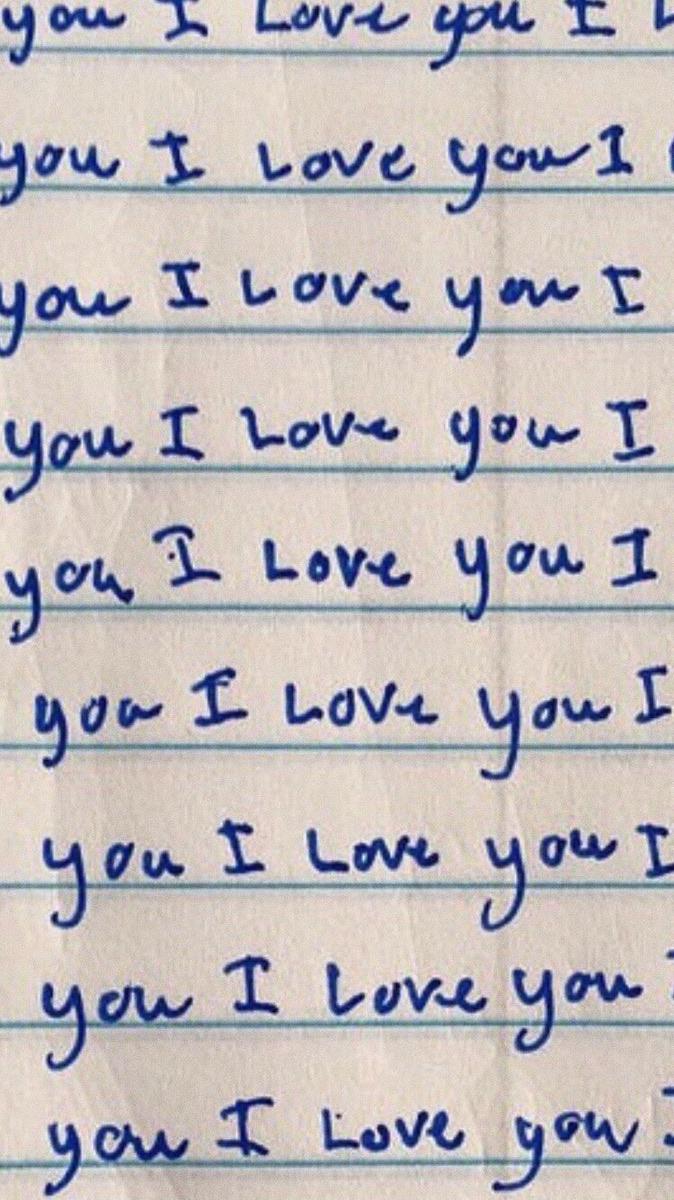 you I Love you I L
you I Love you I
you I Love you I
you I Love you I
you I Love you I
you I Love you I
you I Love you I
you I Love you I
you I Love you I